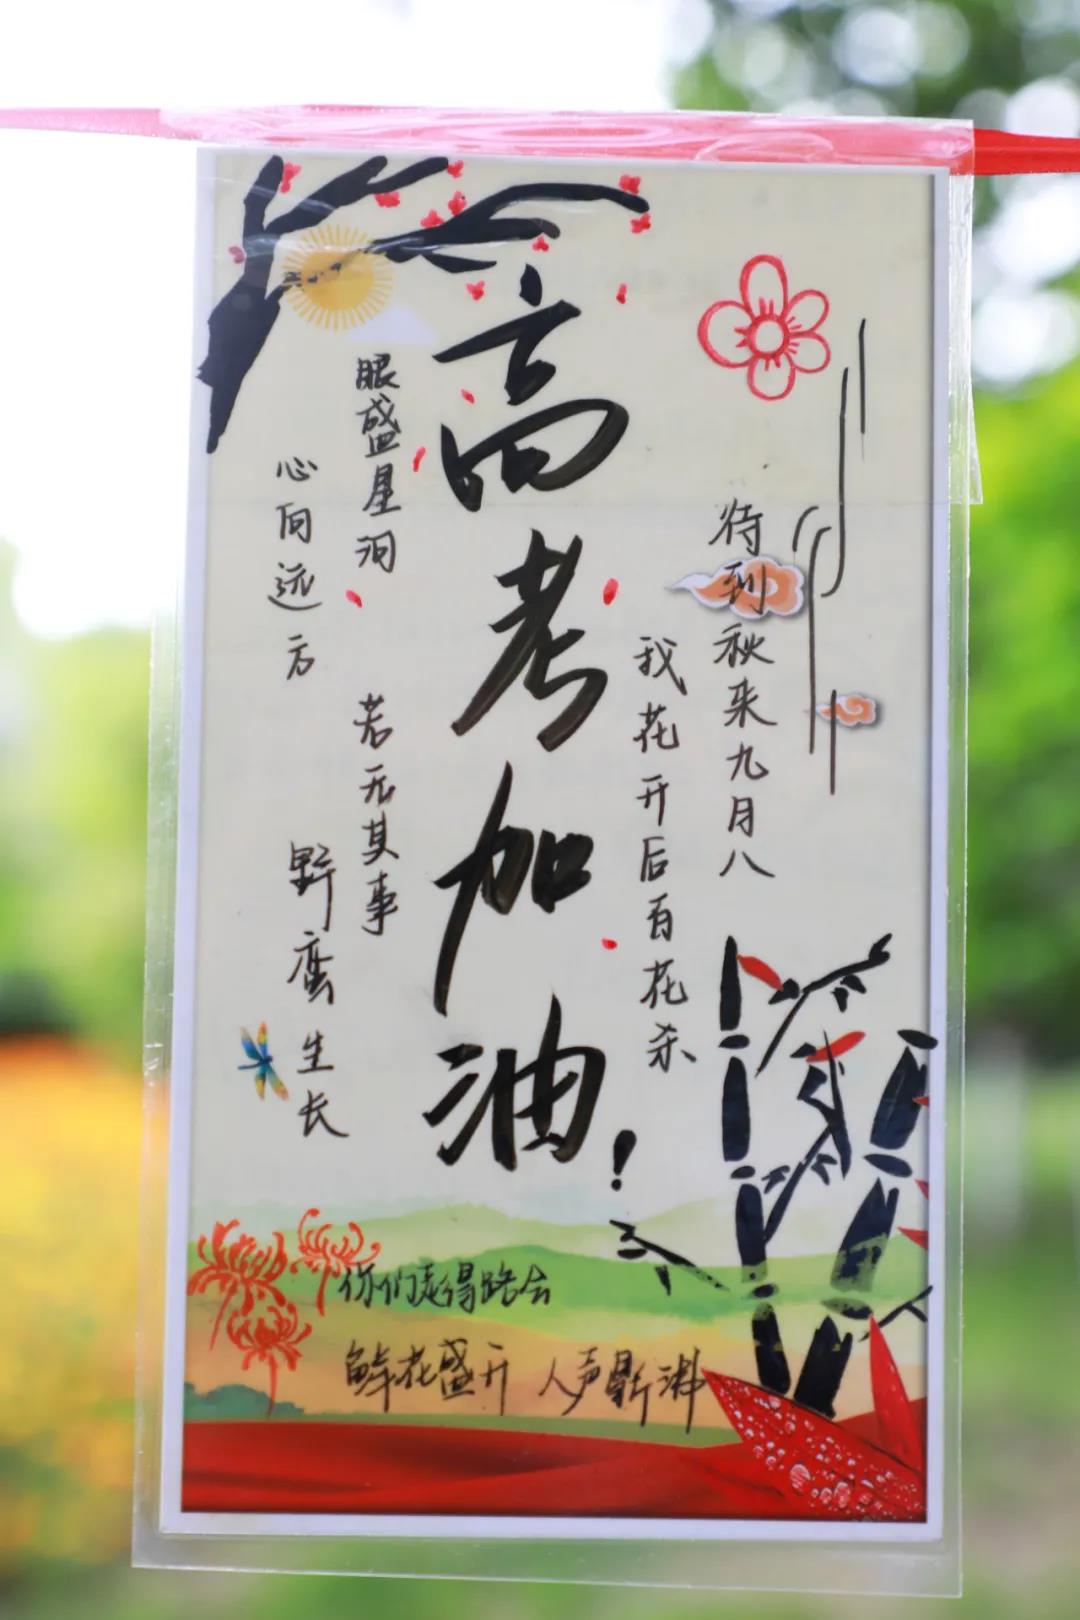 待到秋来九月八
我花开后百花杀
高考加油!
眼盛星河 若无其事
心向远方 野蛮生长
你们走得路会
鲜花盛开 人声鼎沸